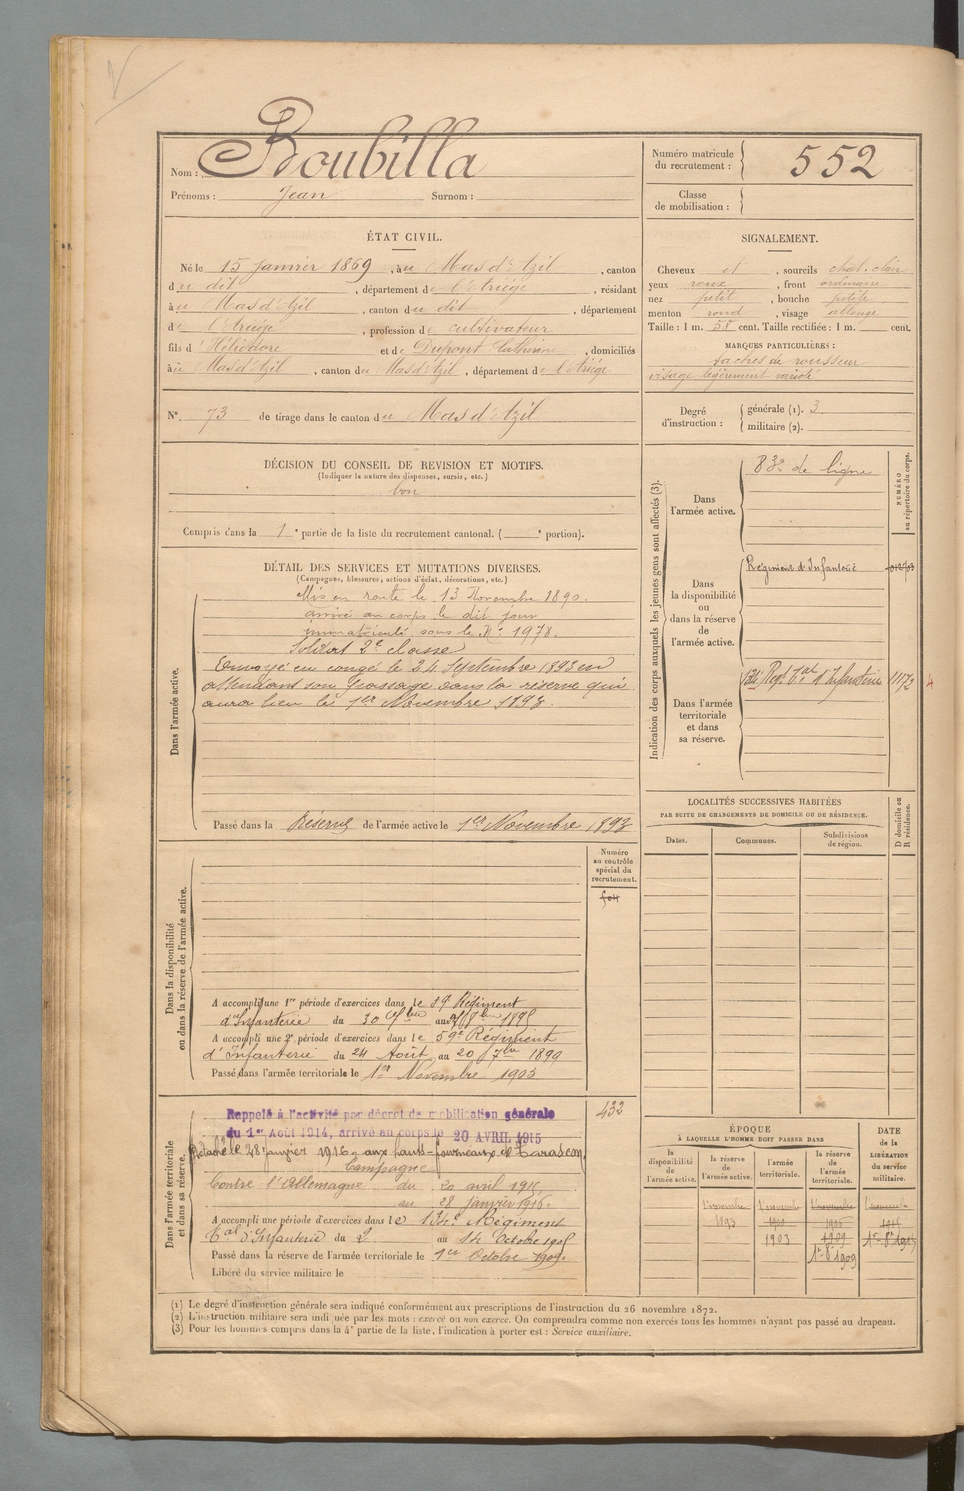 Nom : Boubilla
Prénoms : Jean Surnom :
Numéro matricule du recrutement : 552
Classe de mobilisation :
ÉTAT CIVIL.
Né le 15 janvier 1869, à u Mas d'Azil, canton
du dit, département de l'Ariège, résidant
à u Mas d'Azil, canton du dit, département
de l'Ariège, profession de cultivateur
fils d'Héliodore et de Dupont Catherine, domiciliés
à u Mas d'Azil, canton du Mas d'Azil, département de l'Ariège.
SIGNALEMENT.
Cheveux et, sourcils chat. clair
yeux roux, front ordinaire
nez petit, bouche petite
menton rond, visage allongé
Taille : 1 m. 58 cent. Taille rectifiée : 1 m. cent.
MARQUES PARTICULIÈRES :
taches de rousseur
visage légèrement
N°. 73 de tirage dans le canton du Mas d'Azil
Degré d'instruction : générale (1). 3
militaire (2).
DÉCISION DU CONSEIL DE REVISION ET MOTIFS.
(Indiquer la nature des dispenses, sursis, etc.)
bon
Compris dans la 1e partie de la liste du recrutement cantonal. ( e portion).
DÉTAIL DES SERVICES ET MUTATIONS DIVERSES.
(Campagnes, blessures, actions d'éclat, décorations, etc.)
Dans l'armée active.
Mis en route le 13 Novembre 1890.
arrivé au corps le dit jour
immatriculé sous le N° 1978.
Soldat 2e classe
Envoyé en congé le 24 Septembre 1893 en
attendant son passage dans la réserve qui
aura lieu le 1er Novembre 1893.
Passé dans la Réserve de l'armée active le 1er Novembre 1893
Indication des corps auxquels les jeunes gens sont affectés (3).
NUMÉRO au répertoire du corps.
Dans l'armée active.
83e de ligne
Dans la disponibilité ou dans la réserve de l'armée active.
Régiment d'Infanterie
Dans l'armée territoriale et dans sa réserve.
134e Regt Tal d'Infanterie 1172
LOCALITÉS SUCCESSIVES HABITÉES
PAR SUITE DE CHANGEMENTS DE DOMICILE OU DE RÉSIDENCE.
Dates. Communes. Subdivisions de région. D domicile ou R résidence.
Dans la disponibilité ou dans la réserve de l'armée active.
Numéro au contrôle spécial du recrutement.
A accompli une 1re période d'exercices dans le 59e Régiment
d'Infanterie du 30 au
A accompli une 2e période d'exercices dans le 59e Régiment
d'Infanterie du 24 Août au 20 7bre
Passé dans l'armée territoriale le 1er Novembre 1903
Dans l'armée territoriale et dans sa réserve.
432
Rappelé à l'activité par décret de mobilisation générale
du 1er Août 1914, arrivé au corps le 20 AVRIL 1915
Détaché le 28 janvier 1916 aux hauts-fourneaux de Tarascon
Campagne
Contre l'Allemagne du 20 avril 1915
au 28 janvier 1916.
A accompli une période d'exercices dans le 134e Régiment
Tal d'Infanterie du 2 au 14 Octobre
Passé dans la réserve de l'armée territoriale le 1er Octobre 1909.
Libéré du service militaire le
ÉPOQUE
À LAQUELLE L'HOMME DOIT PASSER DANS
la disponibilité de l'armée active. la réserve de l'armée active. l'armée territoriale. la réserve de l'armée territoriale.
DATE de la LIBÉRATION du service militaire.
1er novembre 1893
1903
1909
1er 8bre 1909
(1) Le degré d'instruction générale sera indiqué conformément aux prescriptions de l'instruction du 26 novembre 1872.
(2) L'instruction militaire sera indiquée par les mots : exercé ou non exercé. On comprendra comme non exercés tous les hommes n'ayant pas passé au drapeau.
(3) Pour les hommes compris dans la 4e partie de la liste, l'indication à porter est : Service auxiliaire.